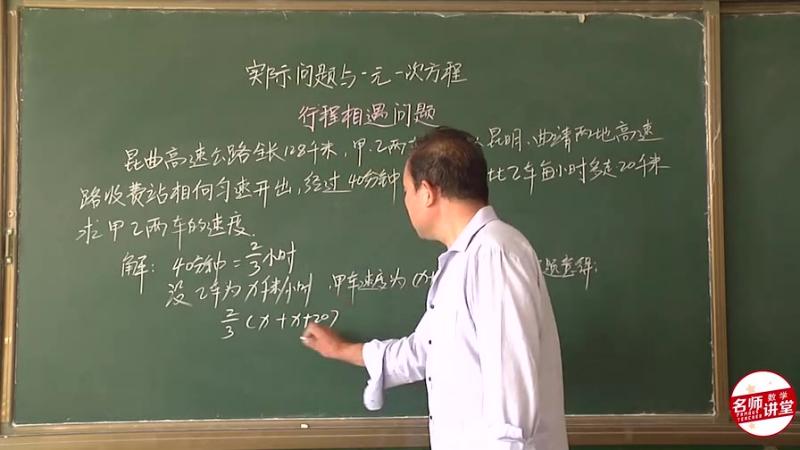 实际问题与一元一次方程
行程相遇问题
昆曲高速公路全长128千米,甲、乙两 昆明、曲靖两地高速
路收费站相向匀速开出,经过40分钟 比乙车每小时多走20千米
求甲乙两车的速度.
解: 40分钟=2/3小时
设乙车为x千米/小时,甲车速度为(x 题意得:
2/3(x+x+20)
名师讲堂
数学
FAMOUS TEACHER